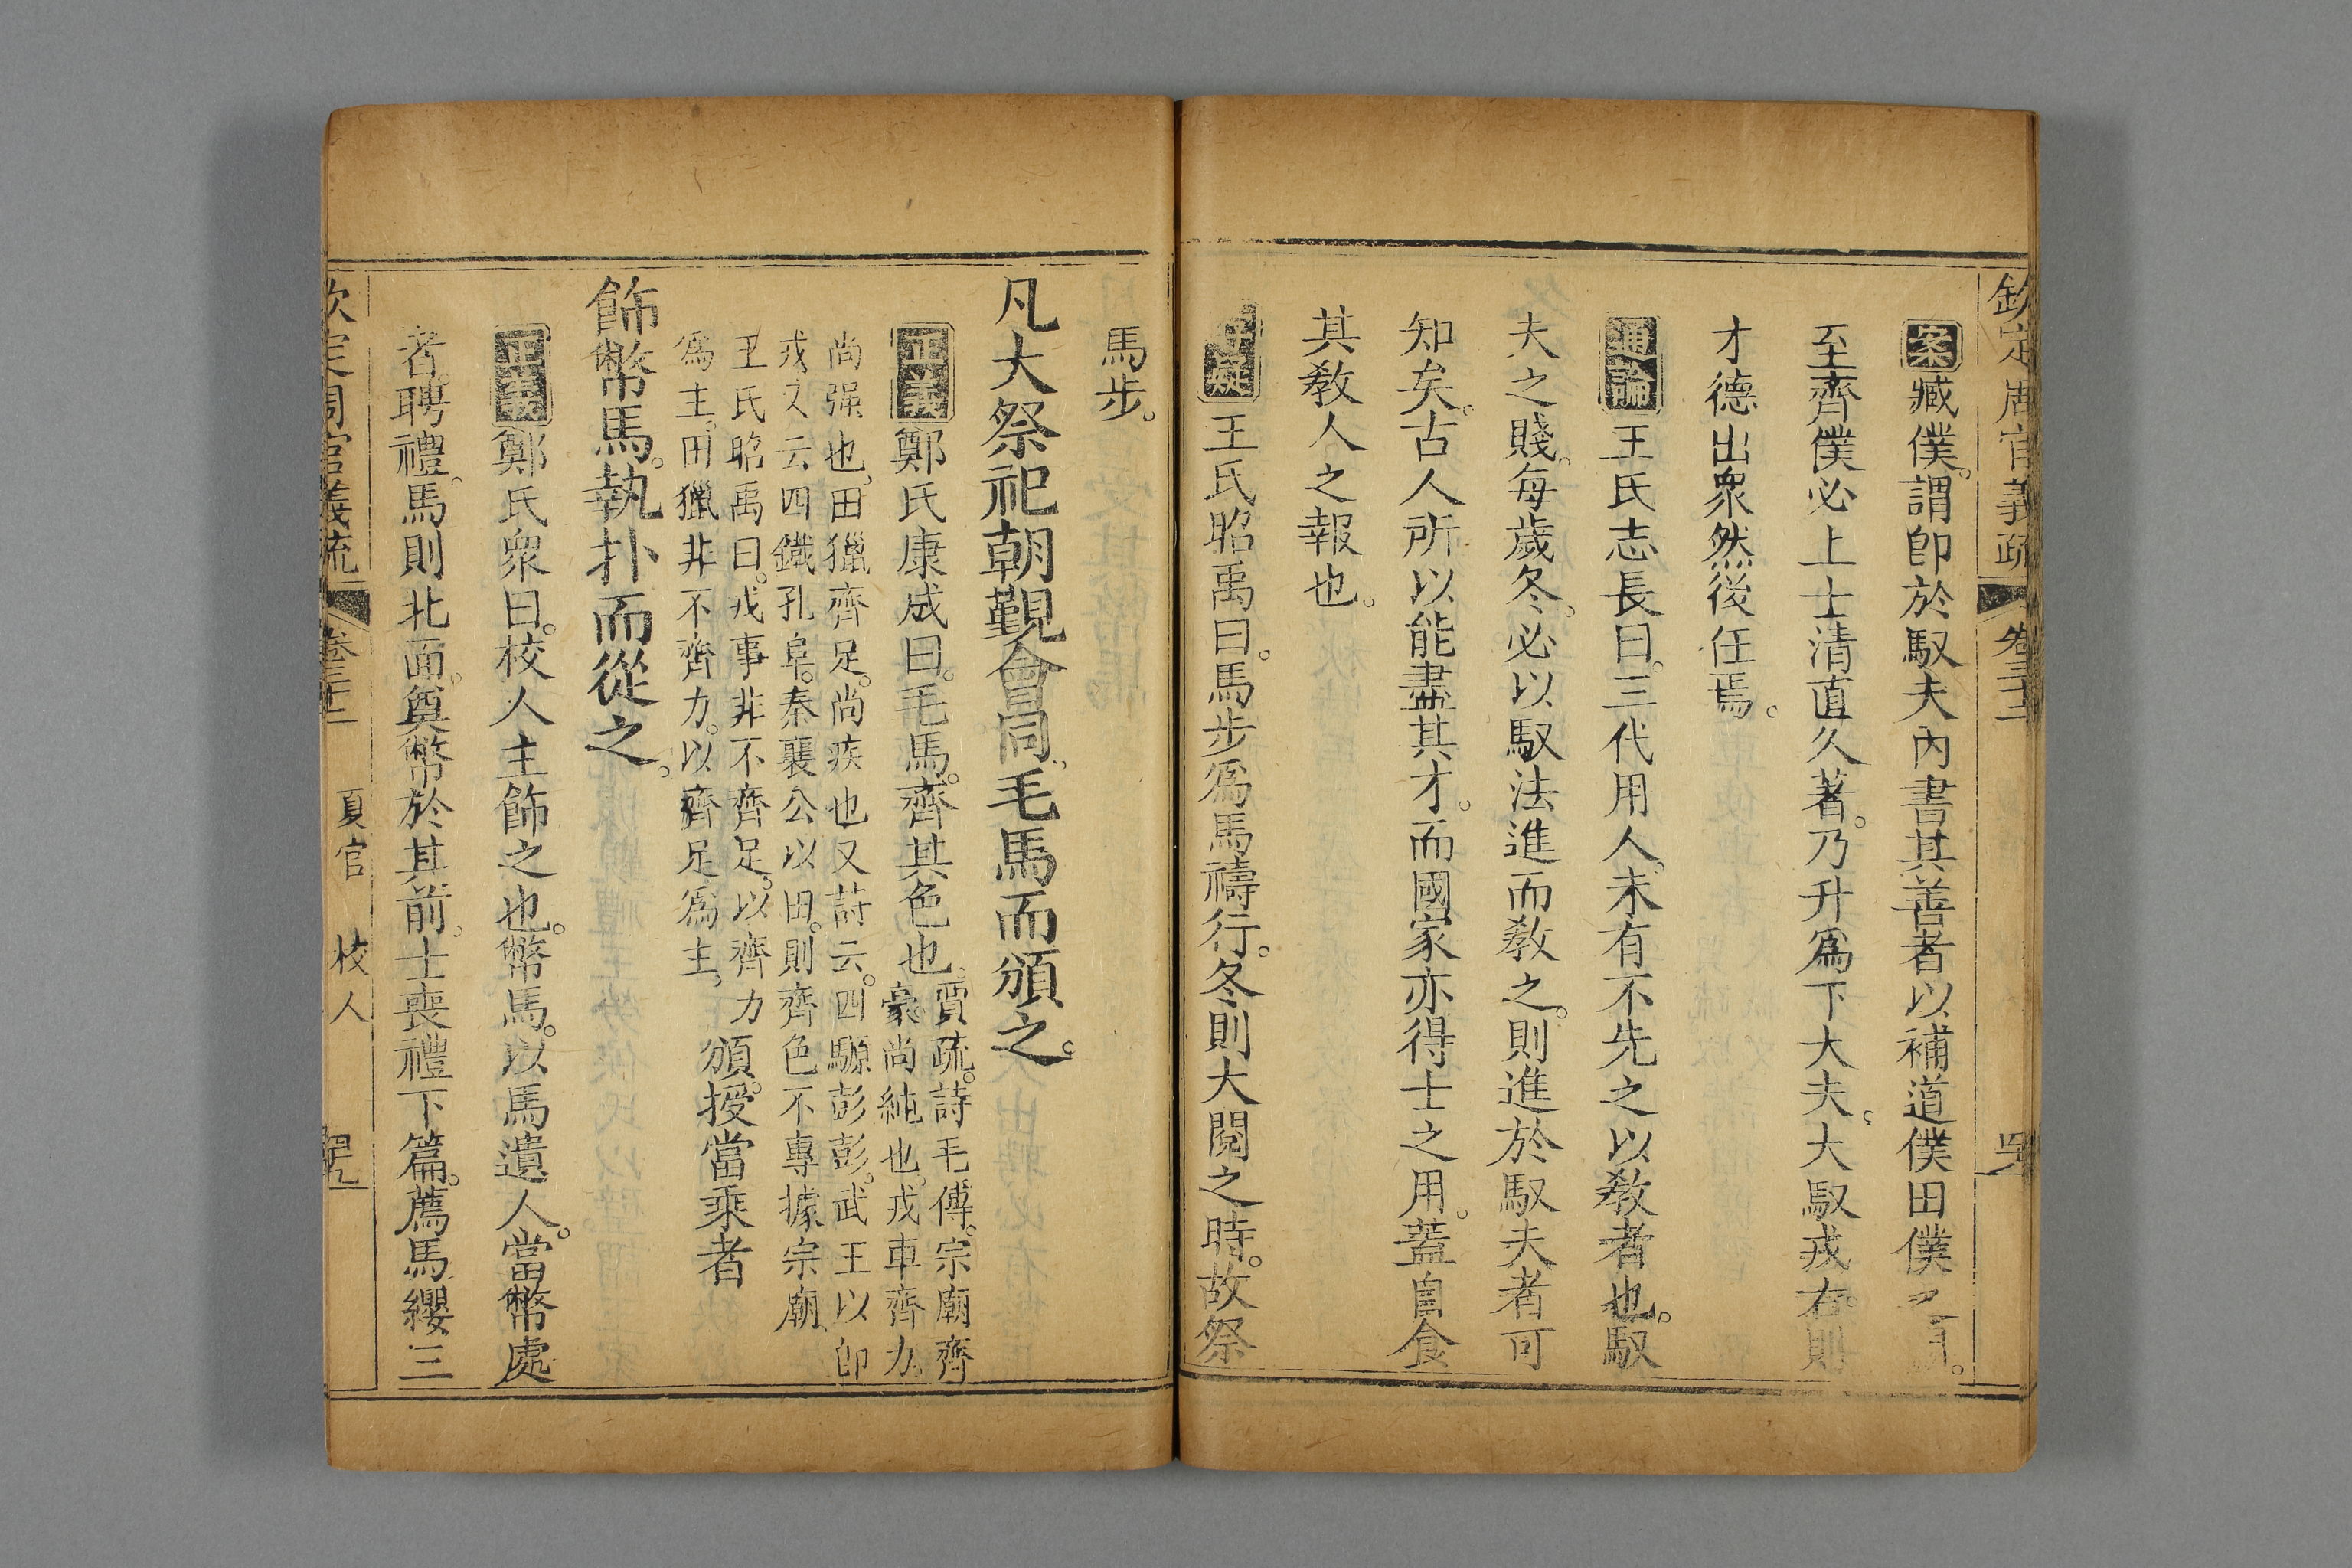 欽定周官義疏 卷三十二
案臧僕。謂卽於馭夫內書其善者以補道僕田僕
至齊僕必上士清直久著。乃升爲下大夫。大馭戎右。則
才德出衆然後任焉。
通論王氏志長曰。三代用人。未有不先之以敎者也。馭
夫之賤。每歲冬。必以馭法進而敎之。則進於馭夫者可
知矣。古人所以能盡其才。而國家亦得士之用。蓋自食
其敎人之報也。
存疑王氏昭禹曰。馬步爲馬禱行。冬則大閱之時。故祭
馬步。
凡大祭祀朝覲會同。毛馬而頒之。
正義鄭氏康成曰。毛馬。齊其色也。賈疏。詩毛傳。宗廟齊
豪。尚純也。戎車齊力。
尚强也。田獵齊足。尚疾也又詩云。四騵彭彭。武王以卽
戎又云四鐵孔阜。秦襄公以田。則齊色不專據宗廟。
王氏昭禹曰。戎事非不齊足。以齊力
爲主。田獵非不齊力。以齊足爲主。頒。授當乘者
飾幣馬。執扑而從之。
正義鄭氏衆曰。校人主飾之也。幣馬。以馬遺人。當幣處
者。聘禮。馬則北面。奠幣於其前。士喪禮下篇。薦馬纓三
欽定周官義疏 卷三十二 夏官 校人 四九